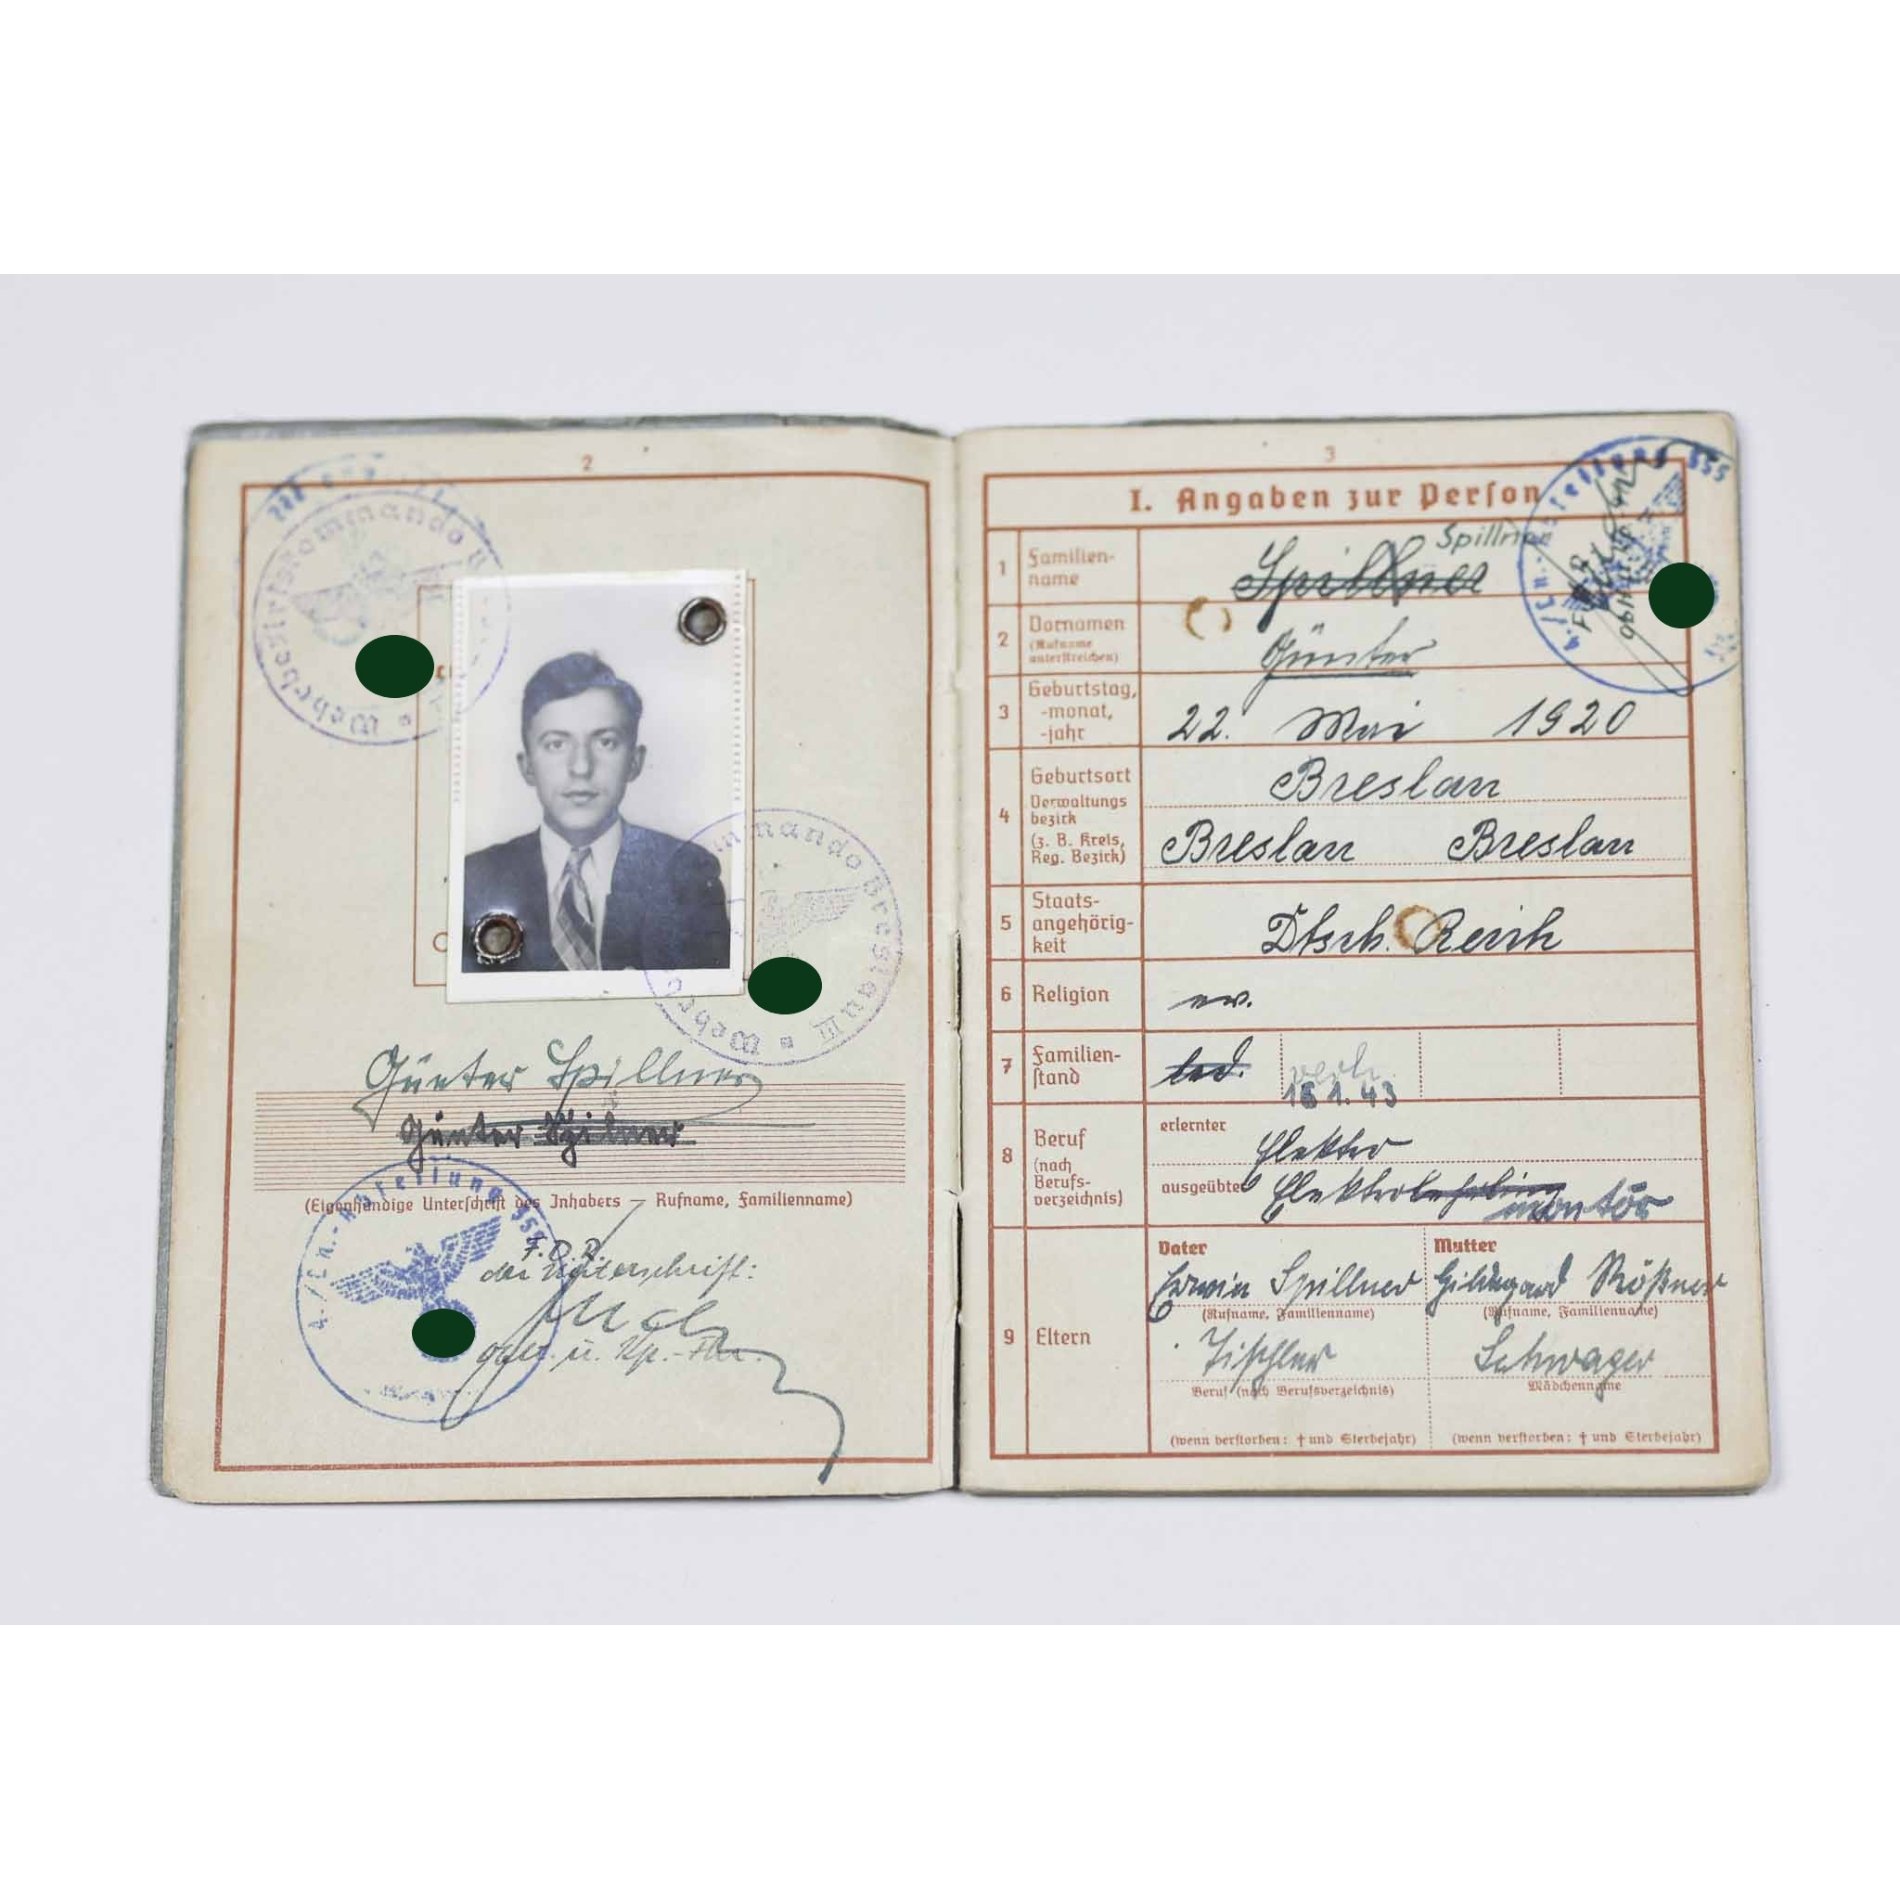 2
Wehrbezirkskommando
Wehrbezirkskommando Breslau III
Günter Spillner
Günter Spilner
(Eigenhändige Unterschrift des Inhabers — Rufname, Familienname)
4./Ln.-Abteilung
F. D. R.
der Unterschrift:
3
I. Angaben zur Person
4./Ln.-Abteilung
1 Familien-
name
Spillner
Spillner
2 Vornamen
(Rufname
unterstreichen)
Günter
3 Geburtstag,
-monat,
-jahr
22. Mai 1920
4 Geburtsort
Breslau
Verwaltungs
bezirk
(z. B. Kreis,
Reg. Bezirk)
Breslau Breslau
5 Staats-
angehörig-
keit
Dtsch. Reich
6 Religion
ev.
7 Familien-
stand
led.
1.43
8 Beruf
(nach
Berufs-
verzeichnis)
erlernter
Elektro
ausgeübter
Elektrolehrling
montör
9 Eltern
Vater
Erwin Spillner
(Rufname, Familienname)
Tischler
Beruf (nach Berufsverzeichnis)
(wenn verstorben: † und Sterbejahr)
Mutter
Hildegard Rößner
(Rufname, Familienname)
Schwager
Mädchenname
(wenn verstorben: † und Sterbejahr)